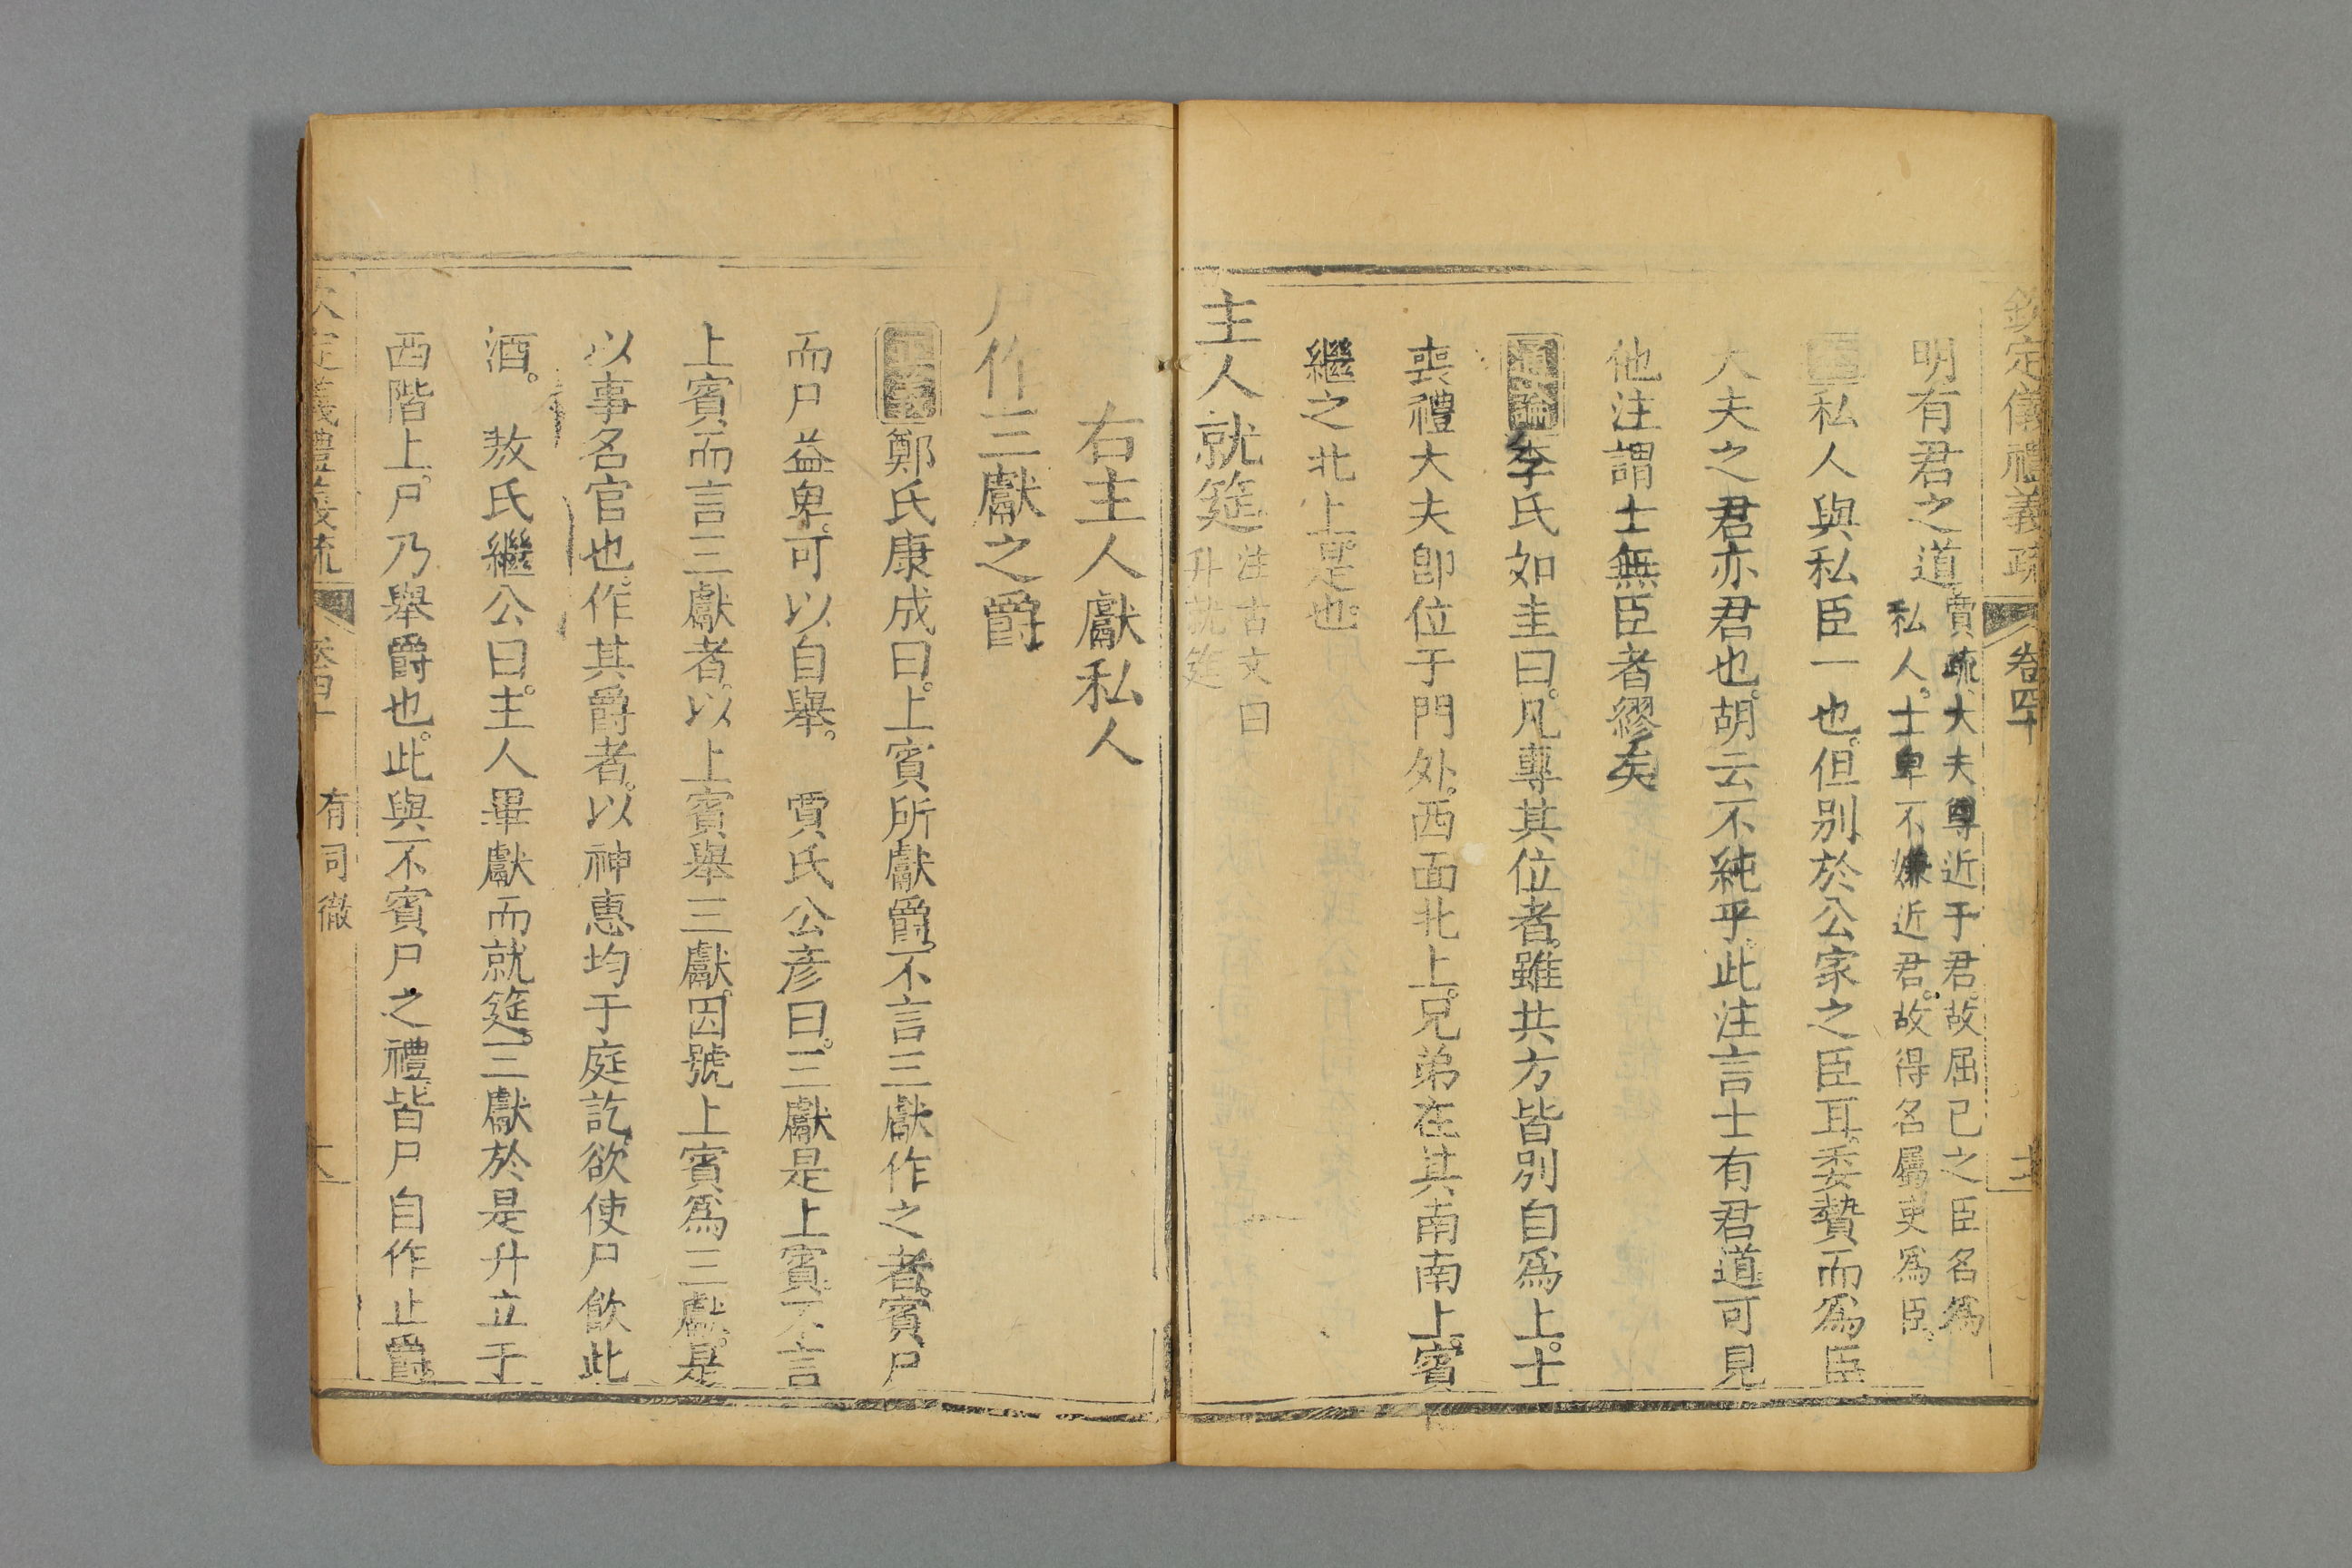 欽定儀禮義疏 卷四十
明有君之道賈疏大夫尊近于君故屈已之臣名爲
私人。士卑不嫌近君。故得名屬吏爲臣。
私人與私臣一也。但别於公家之臣耳。委贄而爲臣
大夫之君亦君也。胡云不純乎。此注言士有君道可見
他注謂士無臣者繆矣
通論李氏如圭曰。凡專其位者。雖共方皆别自爲上。士
喪禮大夫卽位于門外。西面北上。兄弟在其南南上。賓
繼之北上。是也。
主人就筵注古文曰
升就筵
右主人獻私人
尸作三獻之爵
正義鄭氏康成曰。上賓所獻爵。不言三獻作之者。賓尸
而尸益卑。可以自舉。 賈氏公彥曰。三獻是上賓。不言
上賓而言三獻者。以上賓舉三獻。因號上賓爲三獻。是
以事名官也。作其爵者。以神惠均于庭訖。欲使尸飲此
酒。 敖氏繼公曰。主人畢獻而就筵。三獻於是升立于
西階上。尸乃舉爵也。此與不賓尸之禮。皆尸自作止爵
欽定儀禮義疏 卷四十 有司徹